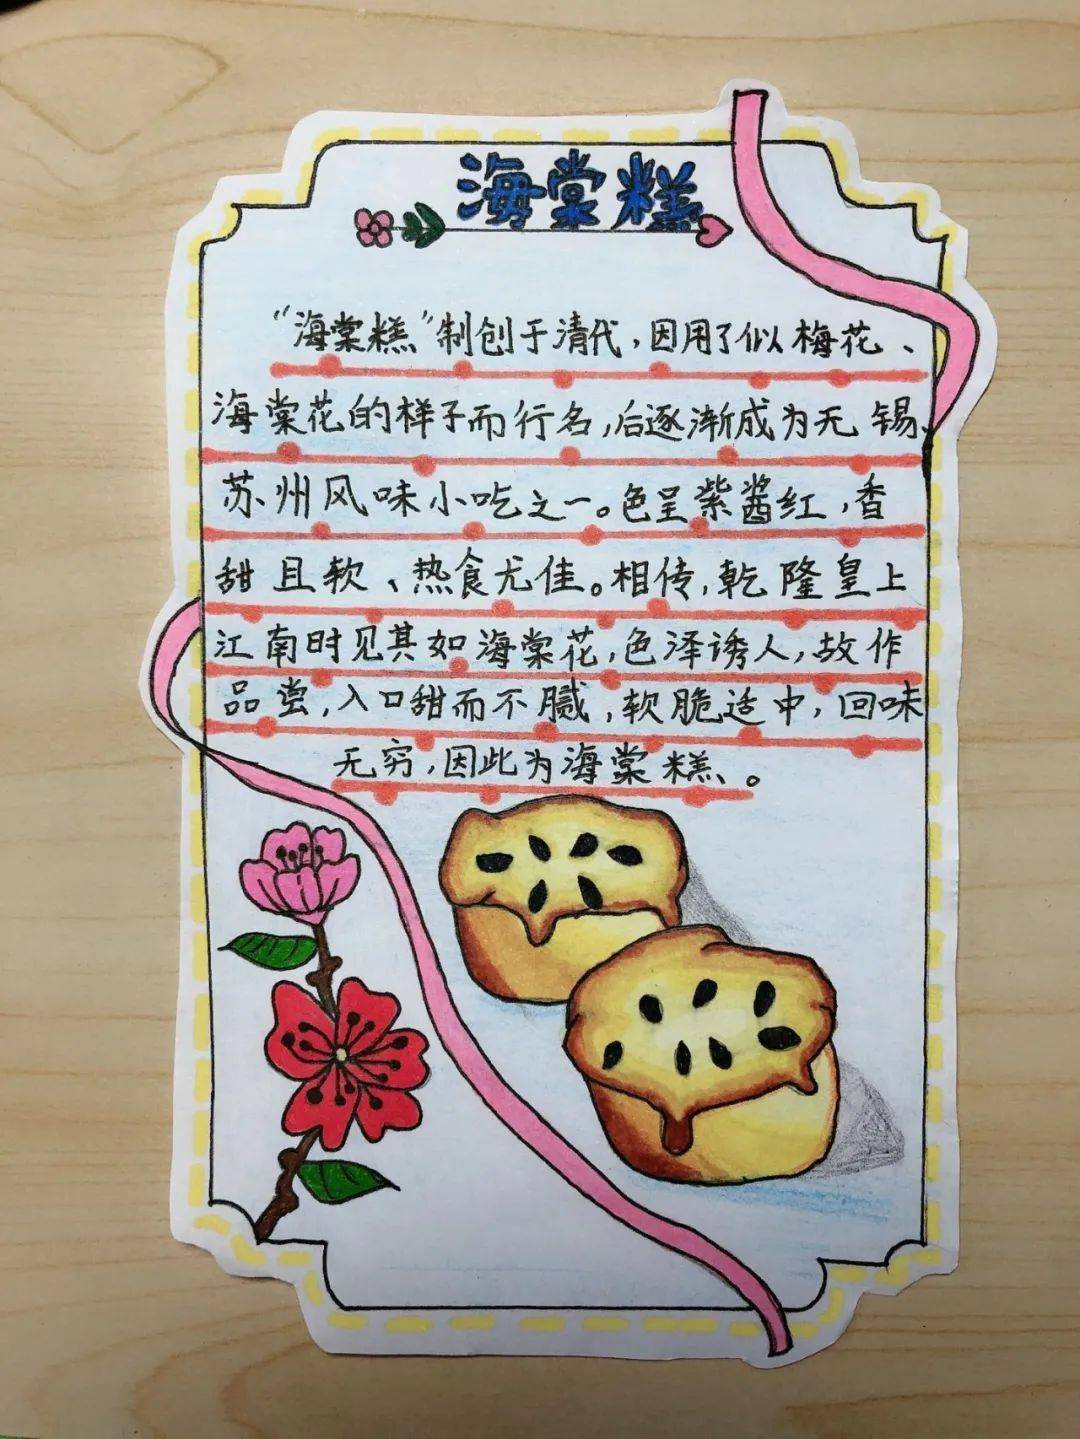 海棠糕
“海棠糕”制创于清代，因用了似梅花、
海棠花的样子而行名，后逐渐成为无锡、
苏州风味小吃之一。色呈紫酱红，香
甜且软、热食尤佳。相传，乾隆皇上
江南时见其如海棠花，色泽诱人，故作
品尝，入口甜而不腻，软脆适中，回味
无穷，因此为海棠糕。